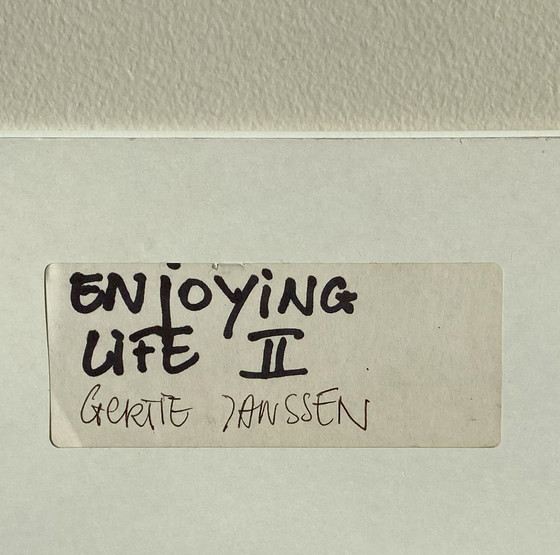 ENjOYiNG
LiFE II
GERTIE JANSSEN